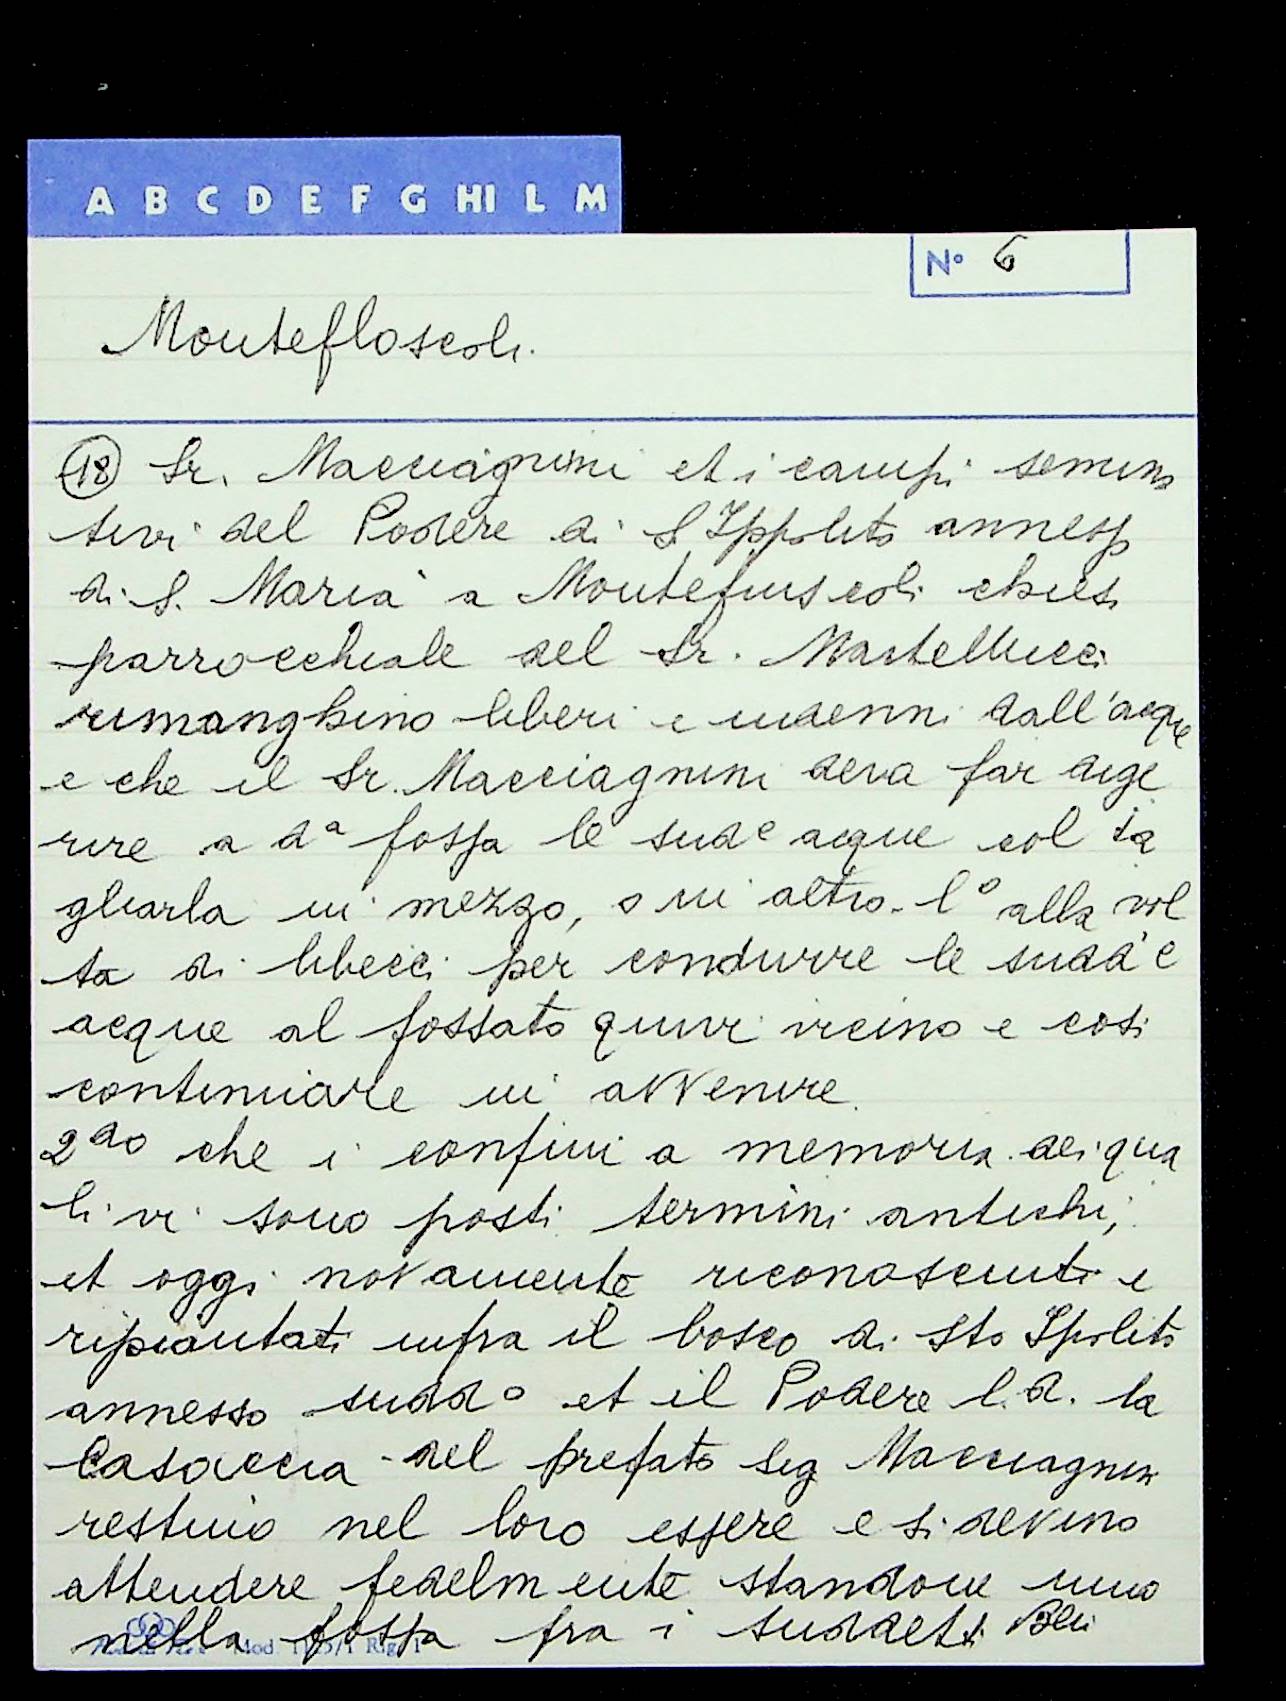 A B C D E F G HI L M
N° 6
Montefloscoli.
18 Sr. Macciagnini et i campi semina
tivi del Podere di S Ippolito annesso
di S. Maria a Montefiuscoli chiesa
parrocchiale del Sr. Martellucci
rimanghino liberi e indenni dall'acque
e che il Sr. Macciagnini deva far dige
rire a dª fossa le sudᵉ acque col ta
gliarla in mezzo, o in altro l° alla vol
ta di libecci per condurre le sudd'e
acque al fossato quivi vicino e cosi
continuare in avvenire.
2do che i confini a memoria dei qua
li vi sono posti termini antichi,
et oggi novamente riconosciuti e
ripiantati infra il bosco di Sto Ipolito
annesso sudd° et il Podere l.d. la
Casaccia del prefato Sig Macciagnini
restino nel loro essere e si devino
attendere fedelmente standone uno
nella fossa fra i suddetti Beni
Mod. Rig. 1